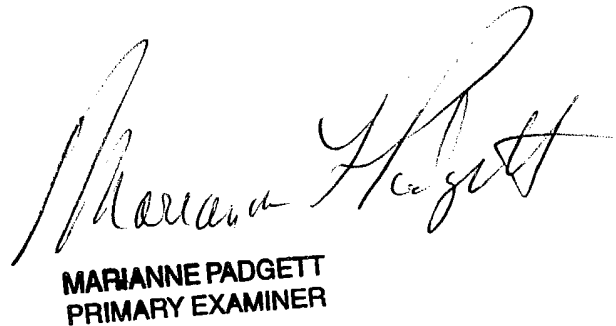 Marianne Padgett
MARIANNE PADGETT
PRIMARY EXAMINER